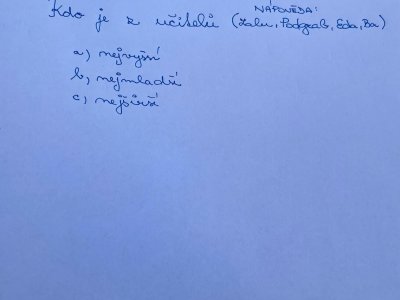 NÁPOVĚDA:
Kdo je z učitelů (Zahu, Podgrab, Eda, Ba)
a) nejvyšší
b) nejmladší
c) nejširší